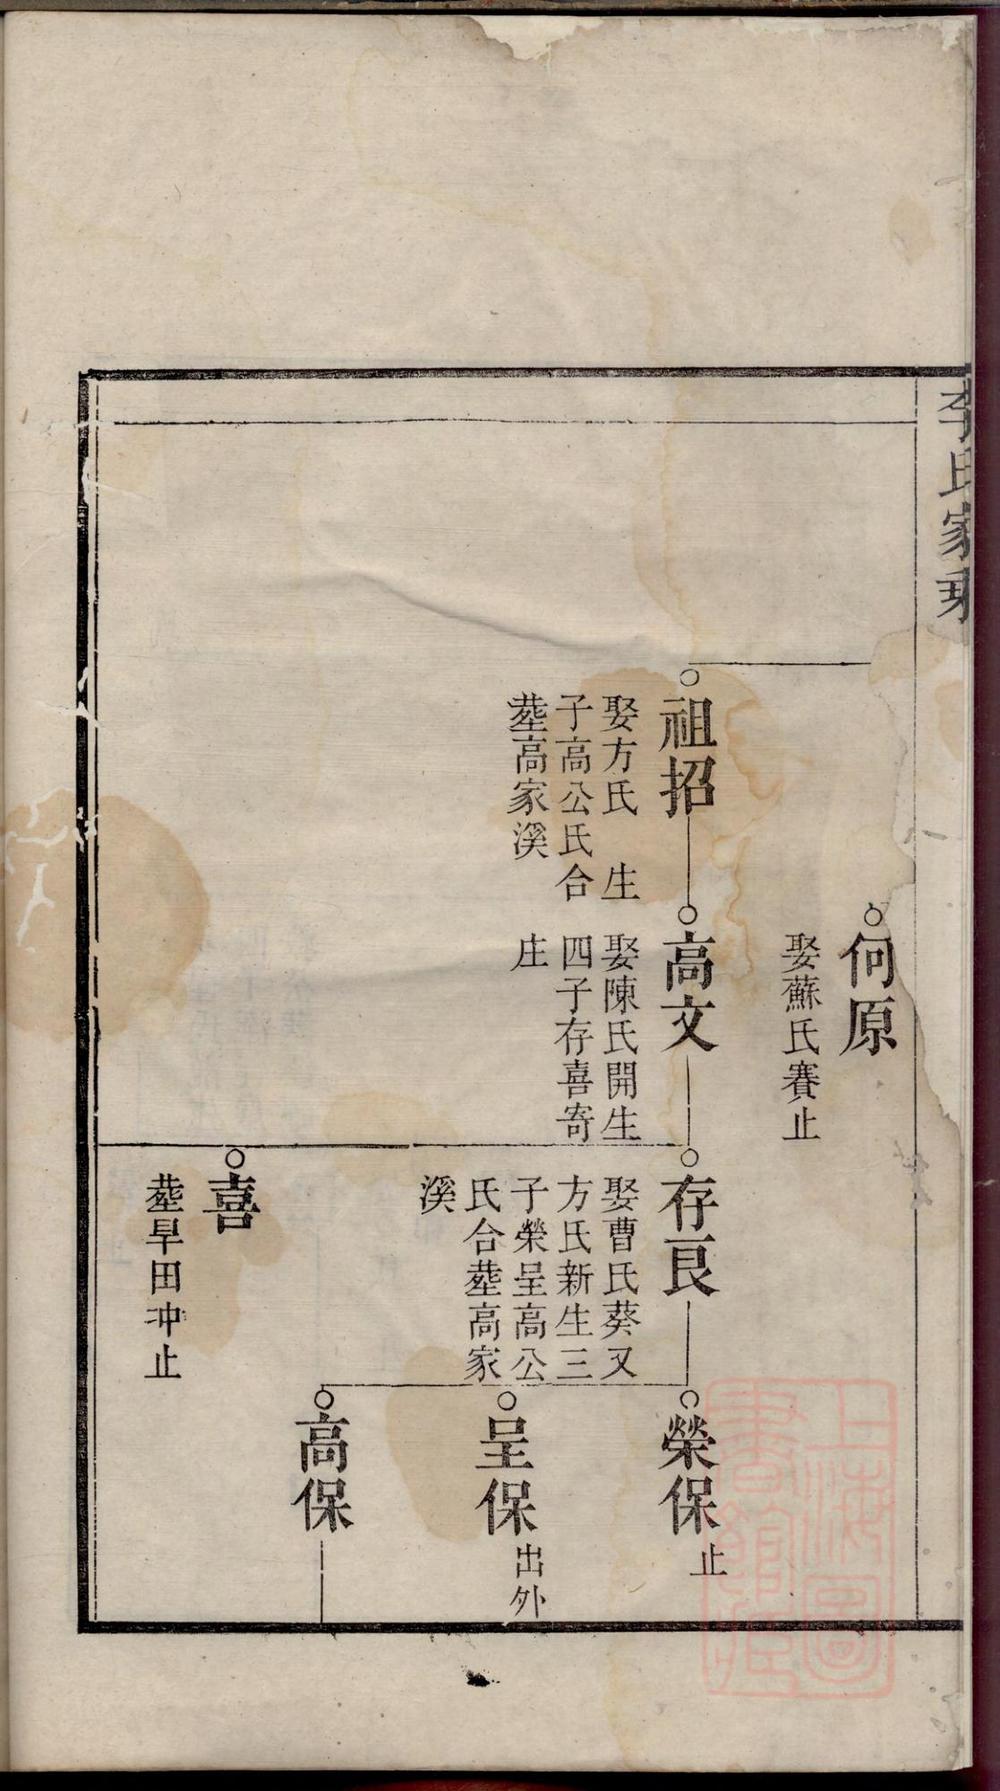 李氏家乘
何原
娶蘇氏賽止
祖招
娶方氏 生
子高公氏合
塟高家溪
高文
娶陳氏開生
四子存喜寄
庄
存良
娶曹氏葵又
方氏新生三
子榮呈高公
氏合塟高家
溪
喜
塟旱田冲止
榮保止
呈保出外
高保
上海圖
書館藏